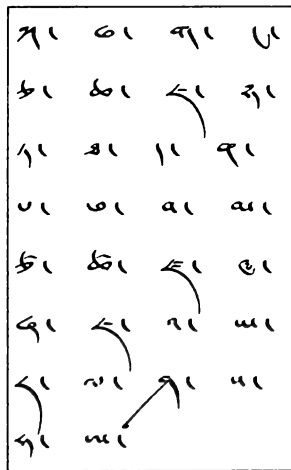 ཀ། ཁ། ག། ང།
ཅ། ཆ། ཇ། ཉ།
ཏ། ཐ། ད། ན།
པ། ཕ། བ། མ།
ཙ། ཚ། ཛ། ཝ།
ཞ། ཟ། འ། ཡ།
ར། ལ། ཤ། ས།
ཧ། ཨ།